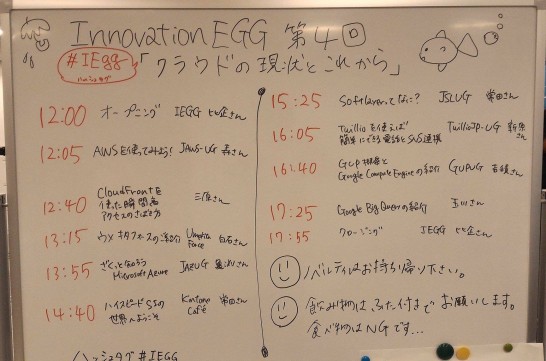 Innovation EGG 第4回
#IEgg
ハッシュタグ
「クラウドの現状とこれから」
12:00 オープニング IEGG 比企さん
12:05 AWSを使ってみよう! JAWS-UG 森さん
12:40 CloudFrontを
使った瞬間高
アクセスのさばき方 三原さん
13:15 の紹介 Force 白石さん
13:55 ざっくり知ろう
Microsoft Azure JAZUG さん
14:40 ハイスピードSSの
世界へようこそ Kintone
Café さん
ハッシュタグ #IEGG
15:25 Softlayerってなに? JSLUG 常田さん
16:05 Twillioを使えば
簡単にできる電話とSMS連携 TwilioJP-UG さん
16:40 GCP概要と
Google Compute Engineの紹介 GCPUG 吉積さん
17:25 Google Big Queryの紹介 玉川さん
17:55 クロージング IEGG 比企さん
ノベルティはお持ち帰り下さい。
飲み物は、ふた付きで お願いします。
食べ物はNGです...